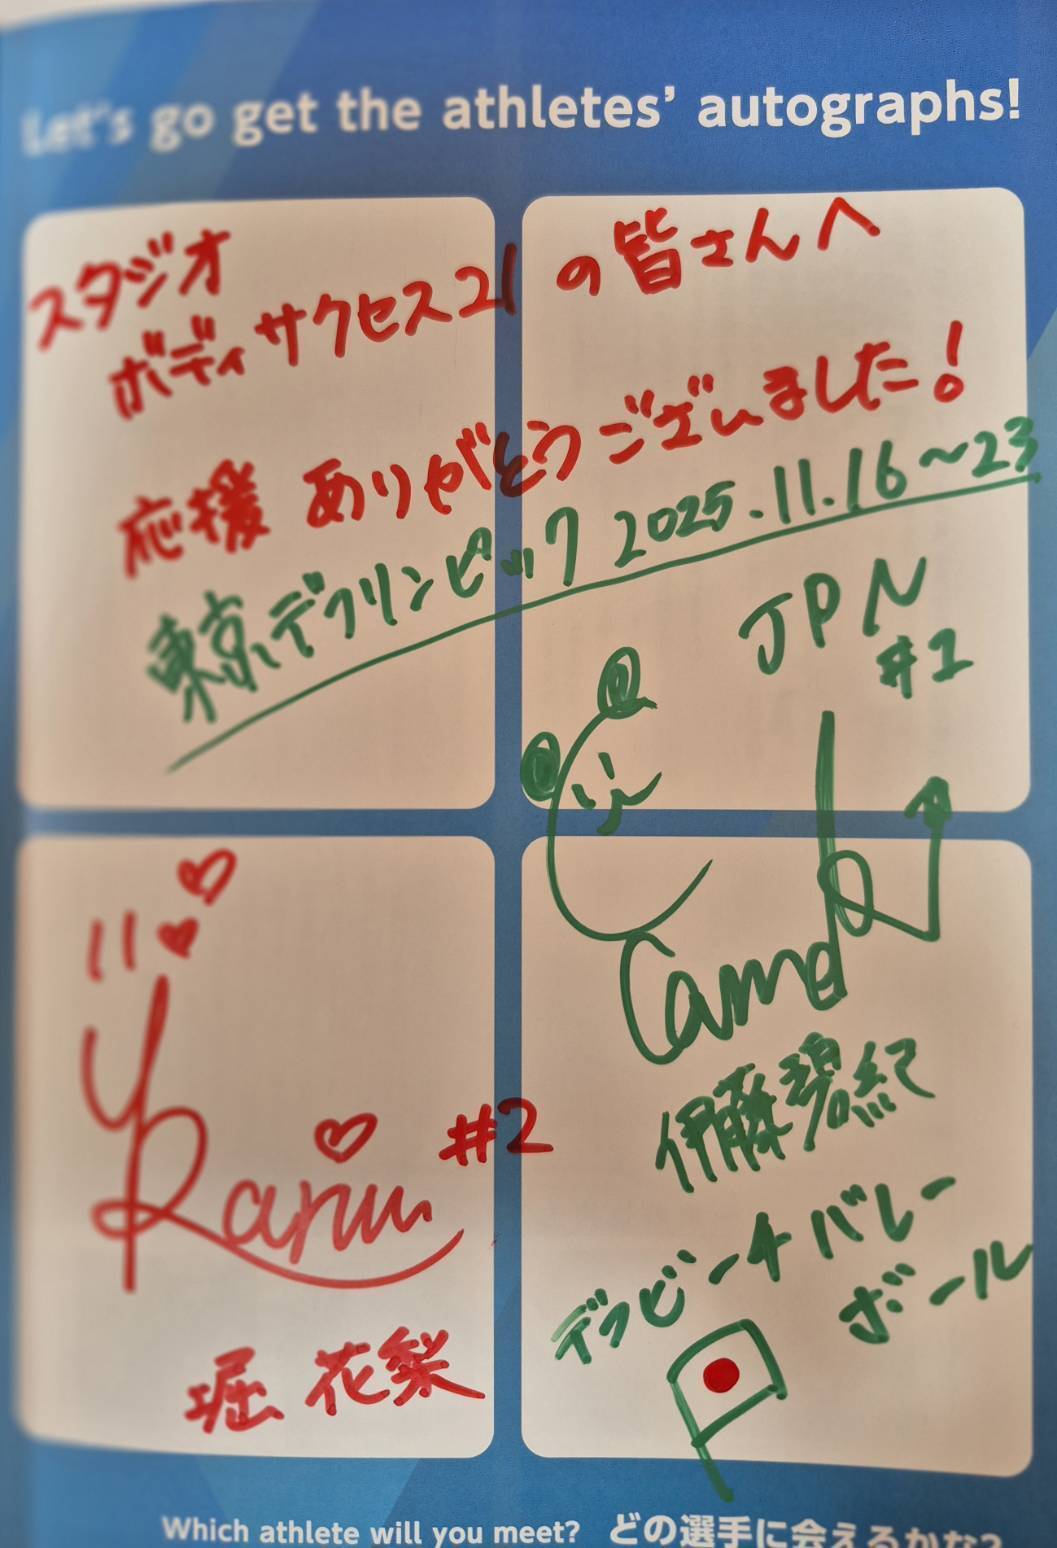 Let's go get the athletes' autographs!
スタジオ
ボディサクセス21の皆さんへ
応援ありがとうございました!
東京デフリンピック 2025.11.16~23
JPN
#1
Camel
Karin
#2
伊藤碧紀
デフビーチバレー
ボール
堀 花梨
Which athlete will you meet? どの選手に会えるかな?